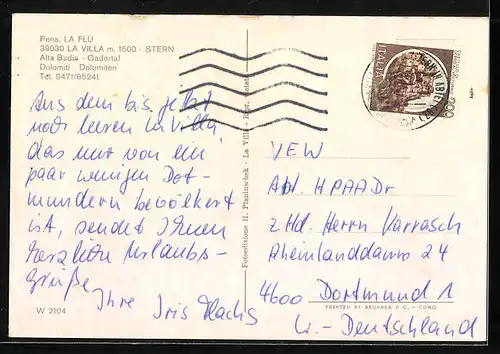 Pens. LA FLÜ
39030 LA VILLA m. 1500 - STERN
Alta Badia - Gadertal
Dolomiti - Dolomiten
Tel. 0471/85241
Aus dem bis jetzt
noch leeren La Villa,
das nur von ein
paar wenigen Dort-
mundern bevölkert
ist, sendet Ihnen
herzliche Urlaubs-
grüße
Ihre Iris
W 2104
Fotoedizione H. Planinschek - La Villa
ITALIA
VEW
Abt. HPAADr
z Hd. Herrn Karrasch
Rheinlanddamm 24
4600 Dortmund 1
W.-Deutschland